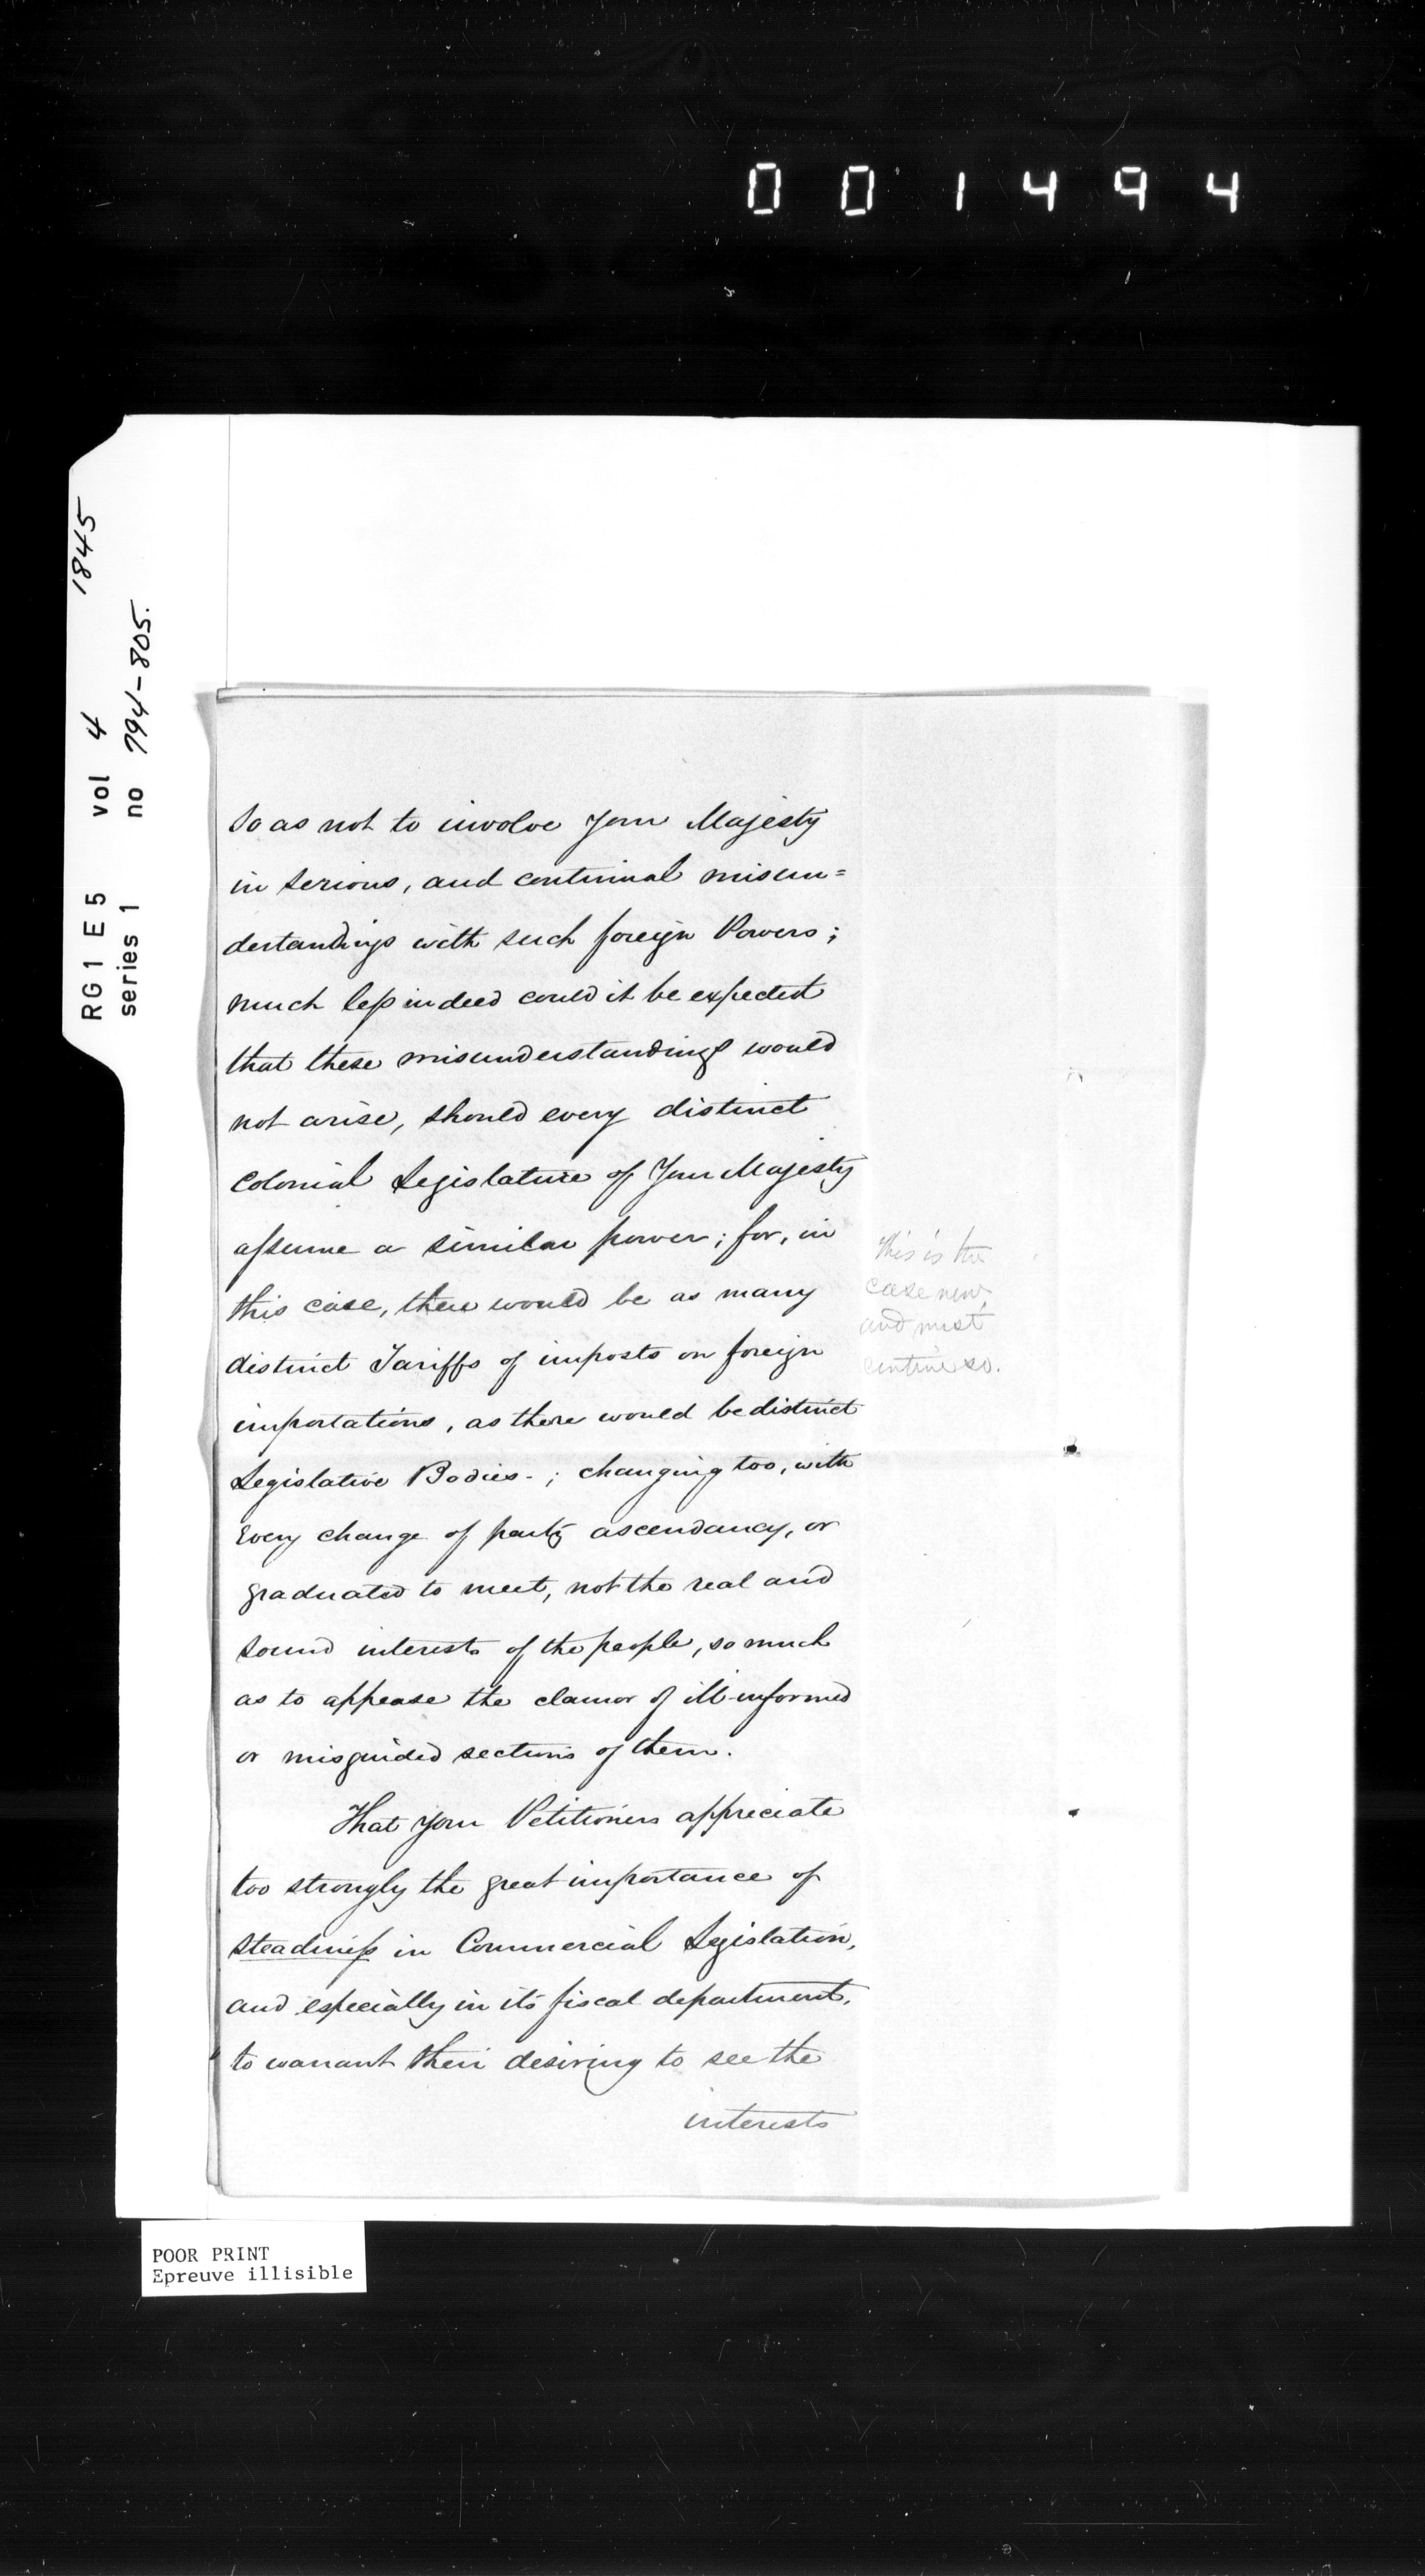 001494
RG1 E5 vol 4 1845
series 1 no 794-805.
So as not to involve Your Majesty
in serious, and continual misun=
derstandings with such foreign Powers;
much less indeed could it be expected
that these misunderstandings would
not arise, should every distinct
Colonial Legislature of Your Majesty
assume a similar power; for, in
this case, there would be as many
distinct Tariffs of imposts on foreign
importations, as there would be distinct
Legislative Bodies-; changing too, with
every change of party ascendancy, or
graduated to meet, not the real and
sound interests of the people, so much
as to appease the clamor of ill-informed
or misguided sections of them.
This is the
case now,
and must
continue so.
That Your Petitioners appreciate
too strongly the great importance of
steadiness in Commercial Legislation,
and especially in its fiscal department,
to warrant their desiring to see the
interests
POOR PRINT
Epreuve illisible